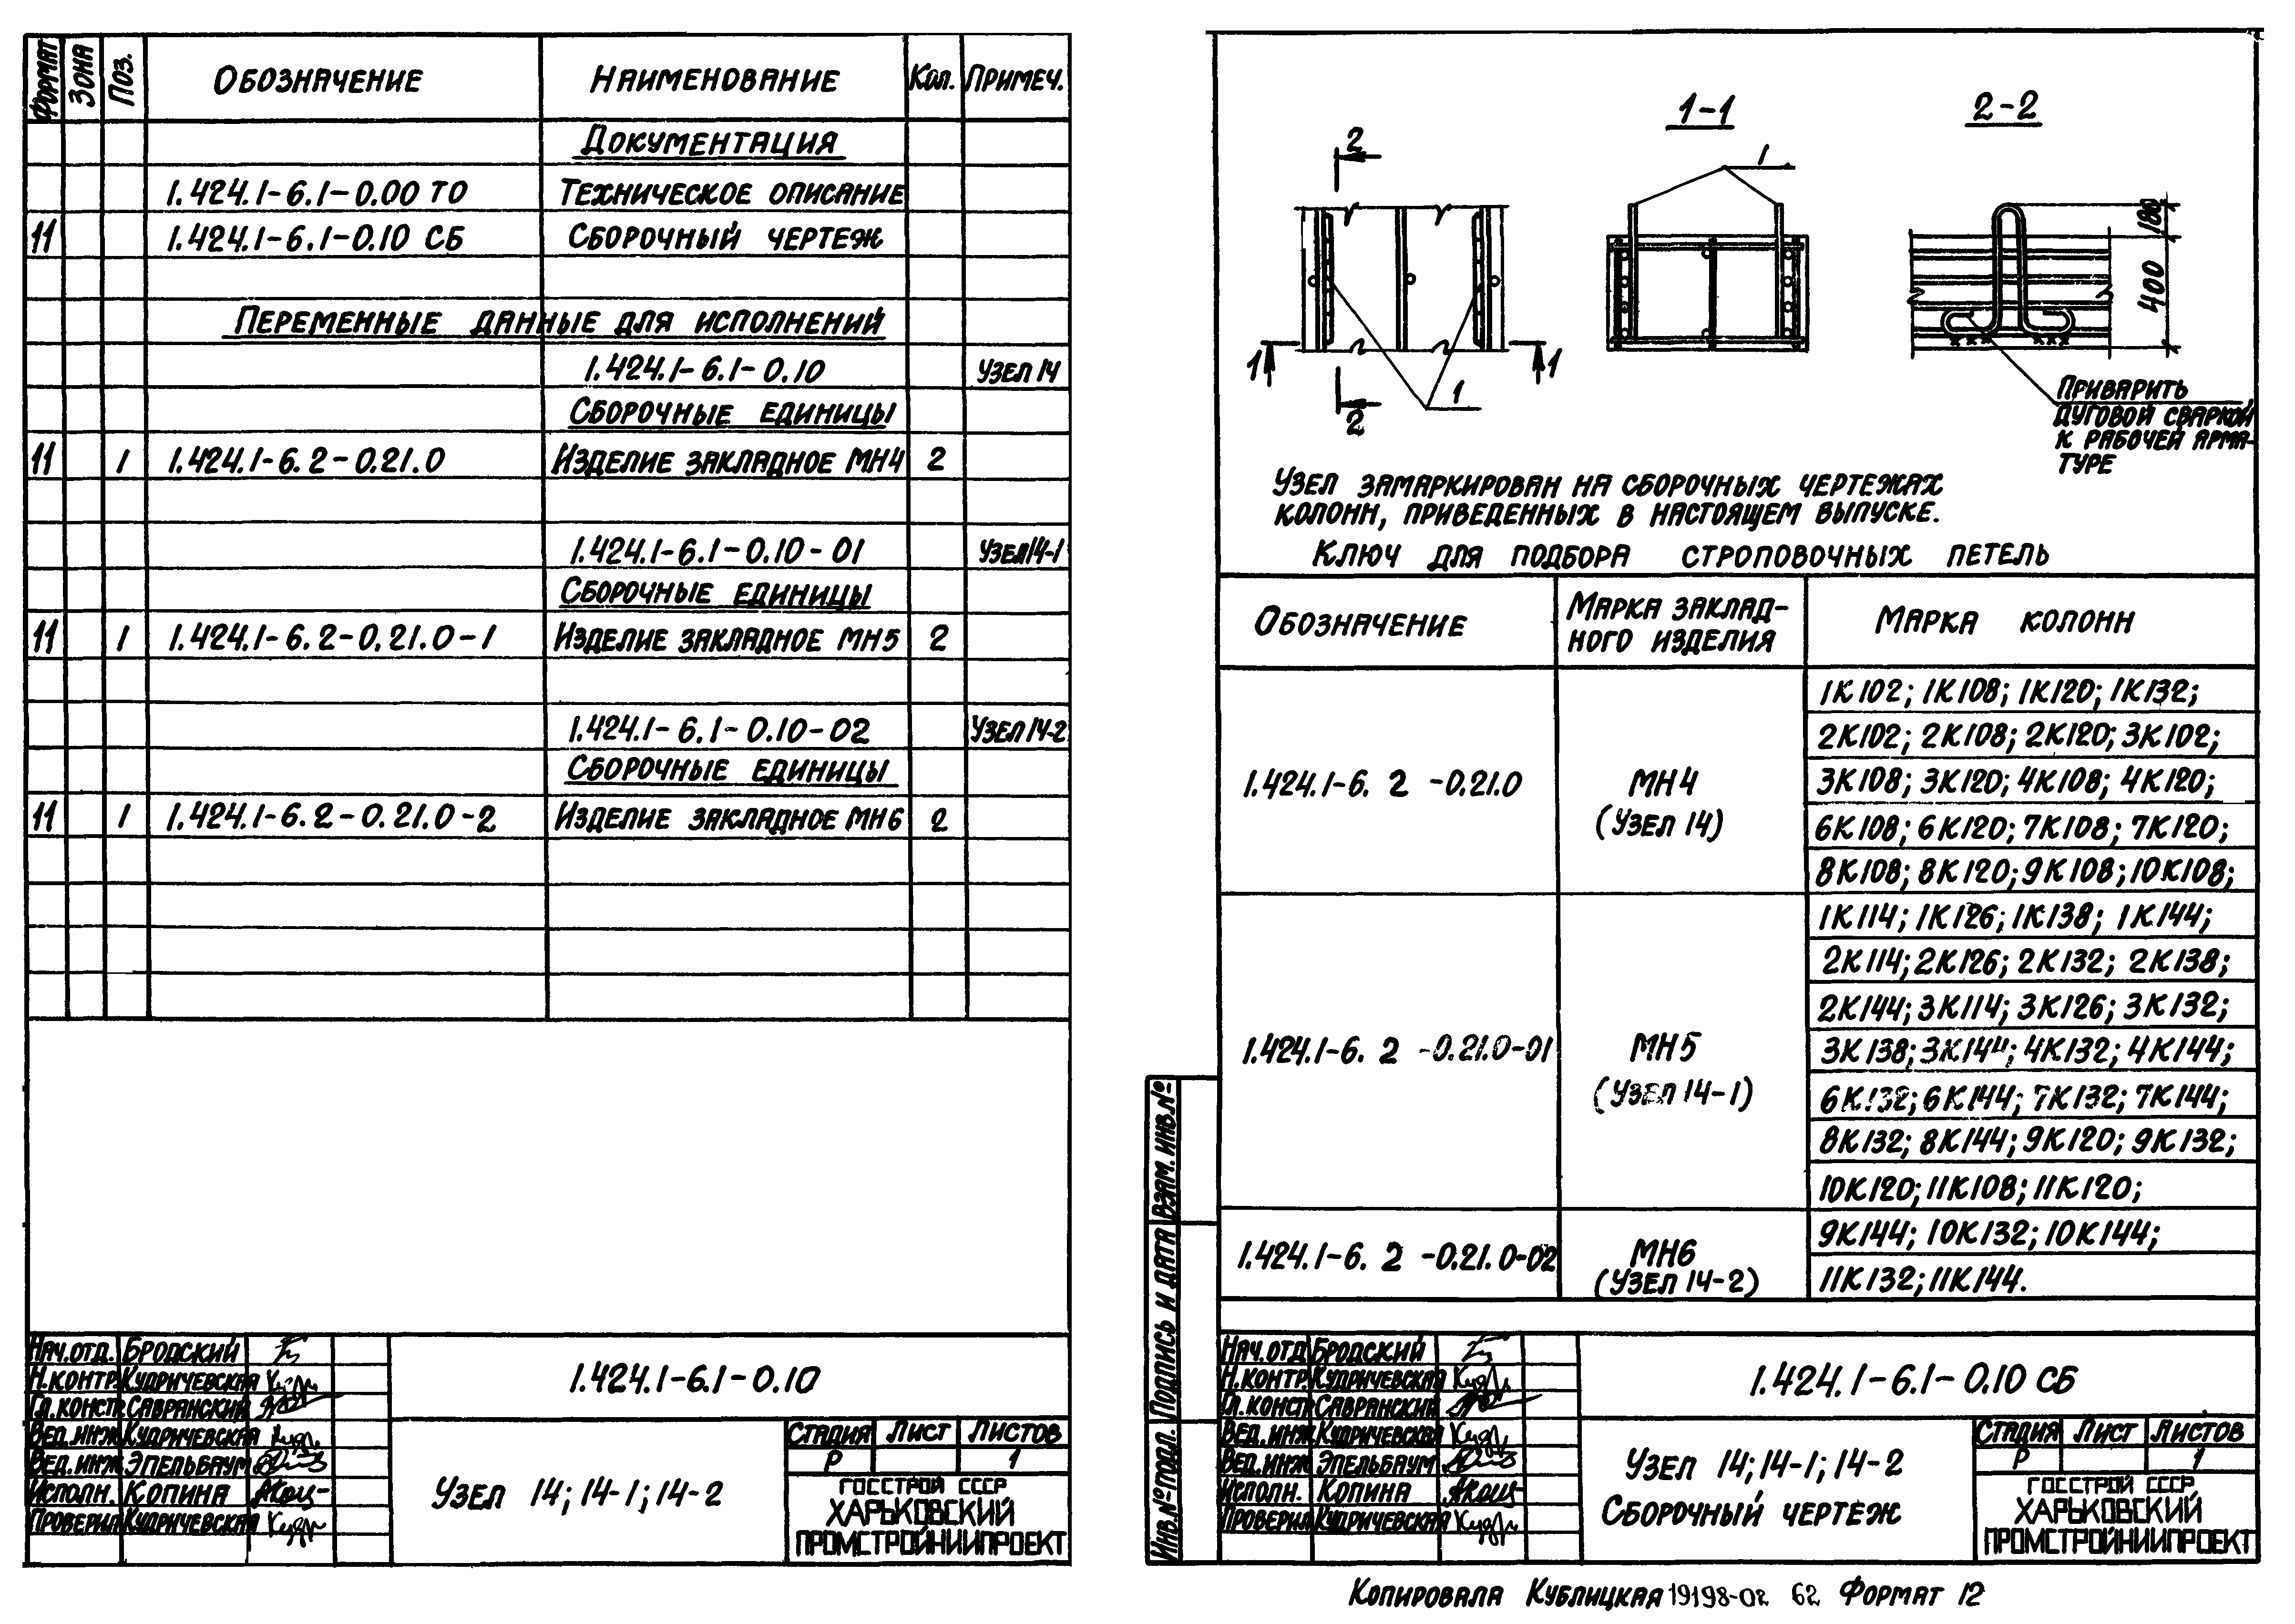 Формат Зона Поз. Обозначение Наименование Кол. Примеч.
Документация
1.424.1-6.1-0.00 ТО Техническое описание
11 1.424.1-6.1-0.10 СБ Сборочный чертеж
Переменные данные для исполнений
1.424.1-6.1-0.10 Узел 14
Сборочные единицы
11 1 1.424.1-6.2-0.21.0 Изделие закладное МН4 2
1.424.1-6.1-0.10-01 Узел 14-1
Сборочные единицы
11 1 1.424.1-6.2-0.21.0-1 Изделие закладное МН5 2
1.424.1-6.1-0.10-02 Узел 14-2
Сборочные единицы
11 1 1.424.1-6.2-0.21.0-2 Изделие закладное МН6 2
Нач.отд. Бродский
Н.контр. Кудричевская
Гл.констр. Савранский
Вед.инж. Кудричевская
Вед.инж. Эпельбаум
Исполн. Копина
Проверил Кудричевская
1.424.1-6.1-0.10
Узел 14; 14-1; 14-2
Стадия Лист Листов
Р 1
ГОССТРОЙ СССР
ХАРЬКОВСКИЙ
ПРОМСТРОЙНИИПРОЕКТ
2
2
1
1
1
1-1
1
2-2
180
400
Приварить
дуговой сваркой
к рабочей арма-
туре
Узел замаркирован на сборочных чертежах
колонн, приведенных в настоящем выпуске.
Ключ для подбора строповочных петель
Обозначение
Марка заклад-
ного изделия
Марка колонн
1.424.1-6. 2 -0.21.0
МН4
(Узел 14)
1К102; 1К108; 1К120; 1К132;
2К102; 2К108; 2К120; 3К102;
3К108; 3К120; 4К108; 4К120;
6К108; 6К120; 7К108; 7К120;
8К108; 8К120; 9К108; 10К108;
1.424.1-6. 2 -0.21.0-01
МН5
(Узел 14-1)
1К114; 1К126; 1К138; 1К144;
2К114; 2К126; 2К132; 2К138;
2К144; 3К114; 3К126; 3К132;
3К138; 3К144; 4К132; 4К144;
6К132; 6К144; 7К132; 7К144;
8К132; 8К144; 9К120; 9К132;
10К120; 11К108; 11К120;
1.424.1-6. 2 -0.21.0-02
МН6
(Узел 14-2)
9К144; 10К132; 10К144;
11К132; 11К144.
Инв.№ подл. Подпись и дата Взам.инв.№
Нач.отд Бродский
Н.контр. Кудричевская
Гл.констр. Савранский
Вед.инж. Кудричевская
Вед.инж Эпельбаум
Исполн. Копина
Проверил Кудричевская
1.424.1-6.1-0.10 СБ
Узел 14; 14-1; 14-2
Сборочный чертеж
Стадия Лист Листов
Р 1
ГОССТРОЙ СССР
ХАРЬКОВСКИЙ
ПРОМСТРОЙНИИПРОЕКТ
Копировала Кублицкая 19198-02 62 Формат 12